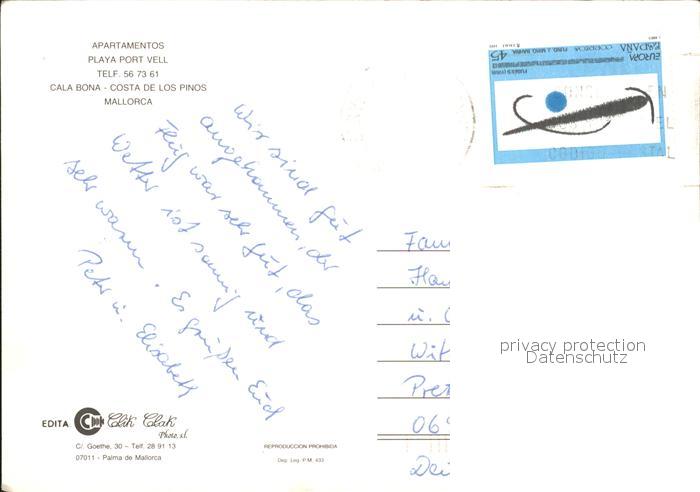 APARTAMENTOS
PLAYA PORT VELL
TELF. 56 73 61
CALA BONA - COSTA DE LOS PINOS
MALLORCA
Wir sind gut
angekommen, der
Flug war sehr gut, das
Wetter ist sonnig und
sehr warm. Es grüßen Euch
Peter u. Elisabeth
EDITA
Clik Clak
Photo, s.l.
C/. Goethe, 30 – Telf. 28 91 13
07011 - Palma de Mallorca
REPRODUCCION PROHIBIDA
Dep. Leg. P.M. 433
ESPAÑA
CORREOS
EUROPA
45
Fam
Han
u.
Wit
Pre
06
privacy protection
Datenschutz